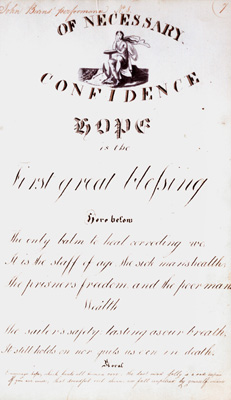 John Burns performance No. 1
7
OF NECESSARY
CONFIDENCE
HOPE
is the
First great blessing
Here below
The only balm to heal corroding wo.
It is the staff of age the sick manshealth.
The prisners freedom and the poor mans
Wealth
The sailers safty lasting as our breath.
It still holds on nor quits us e'en in death.